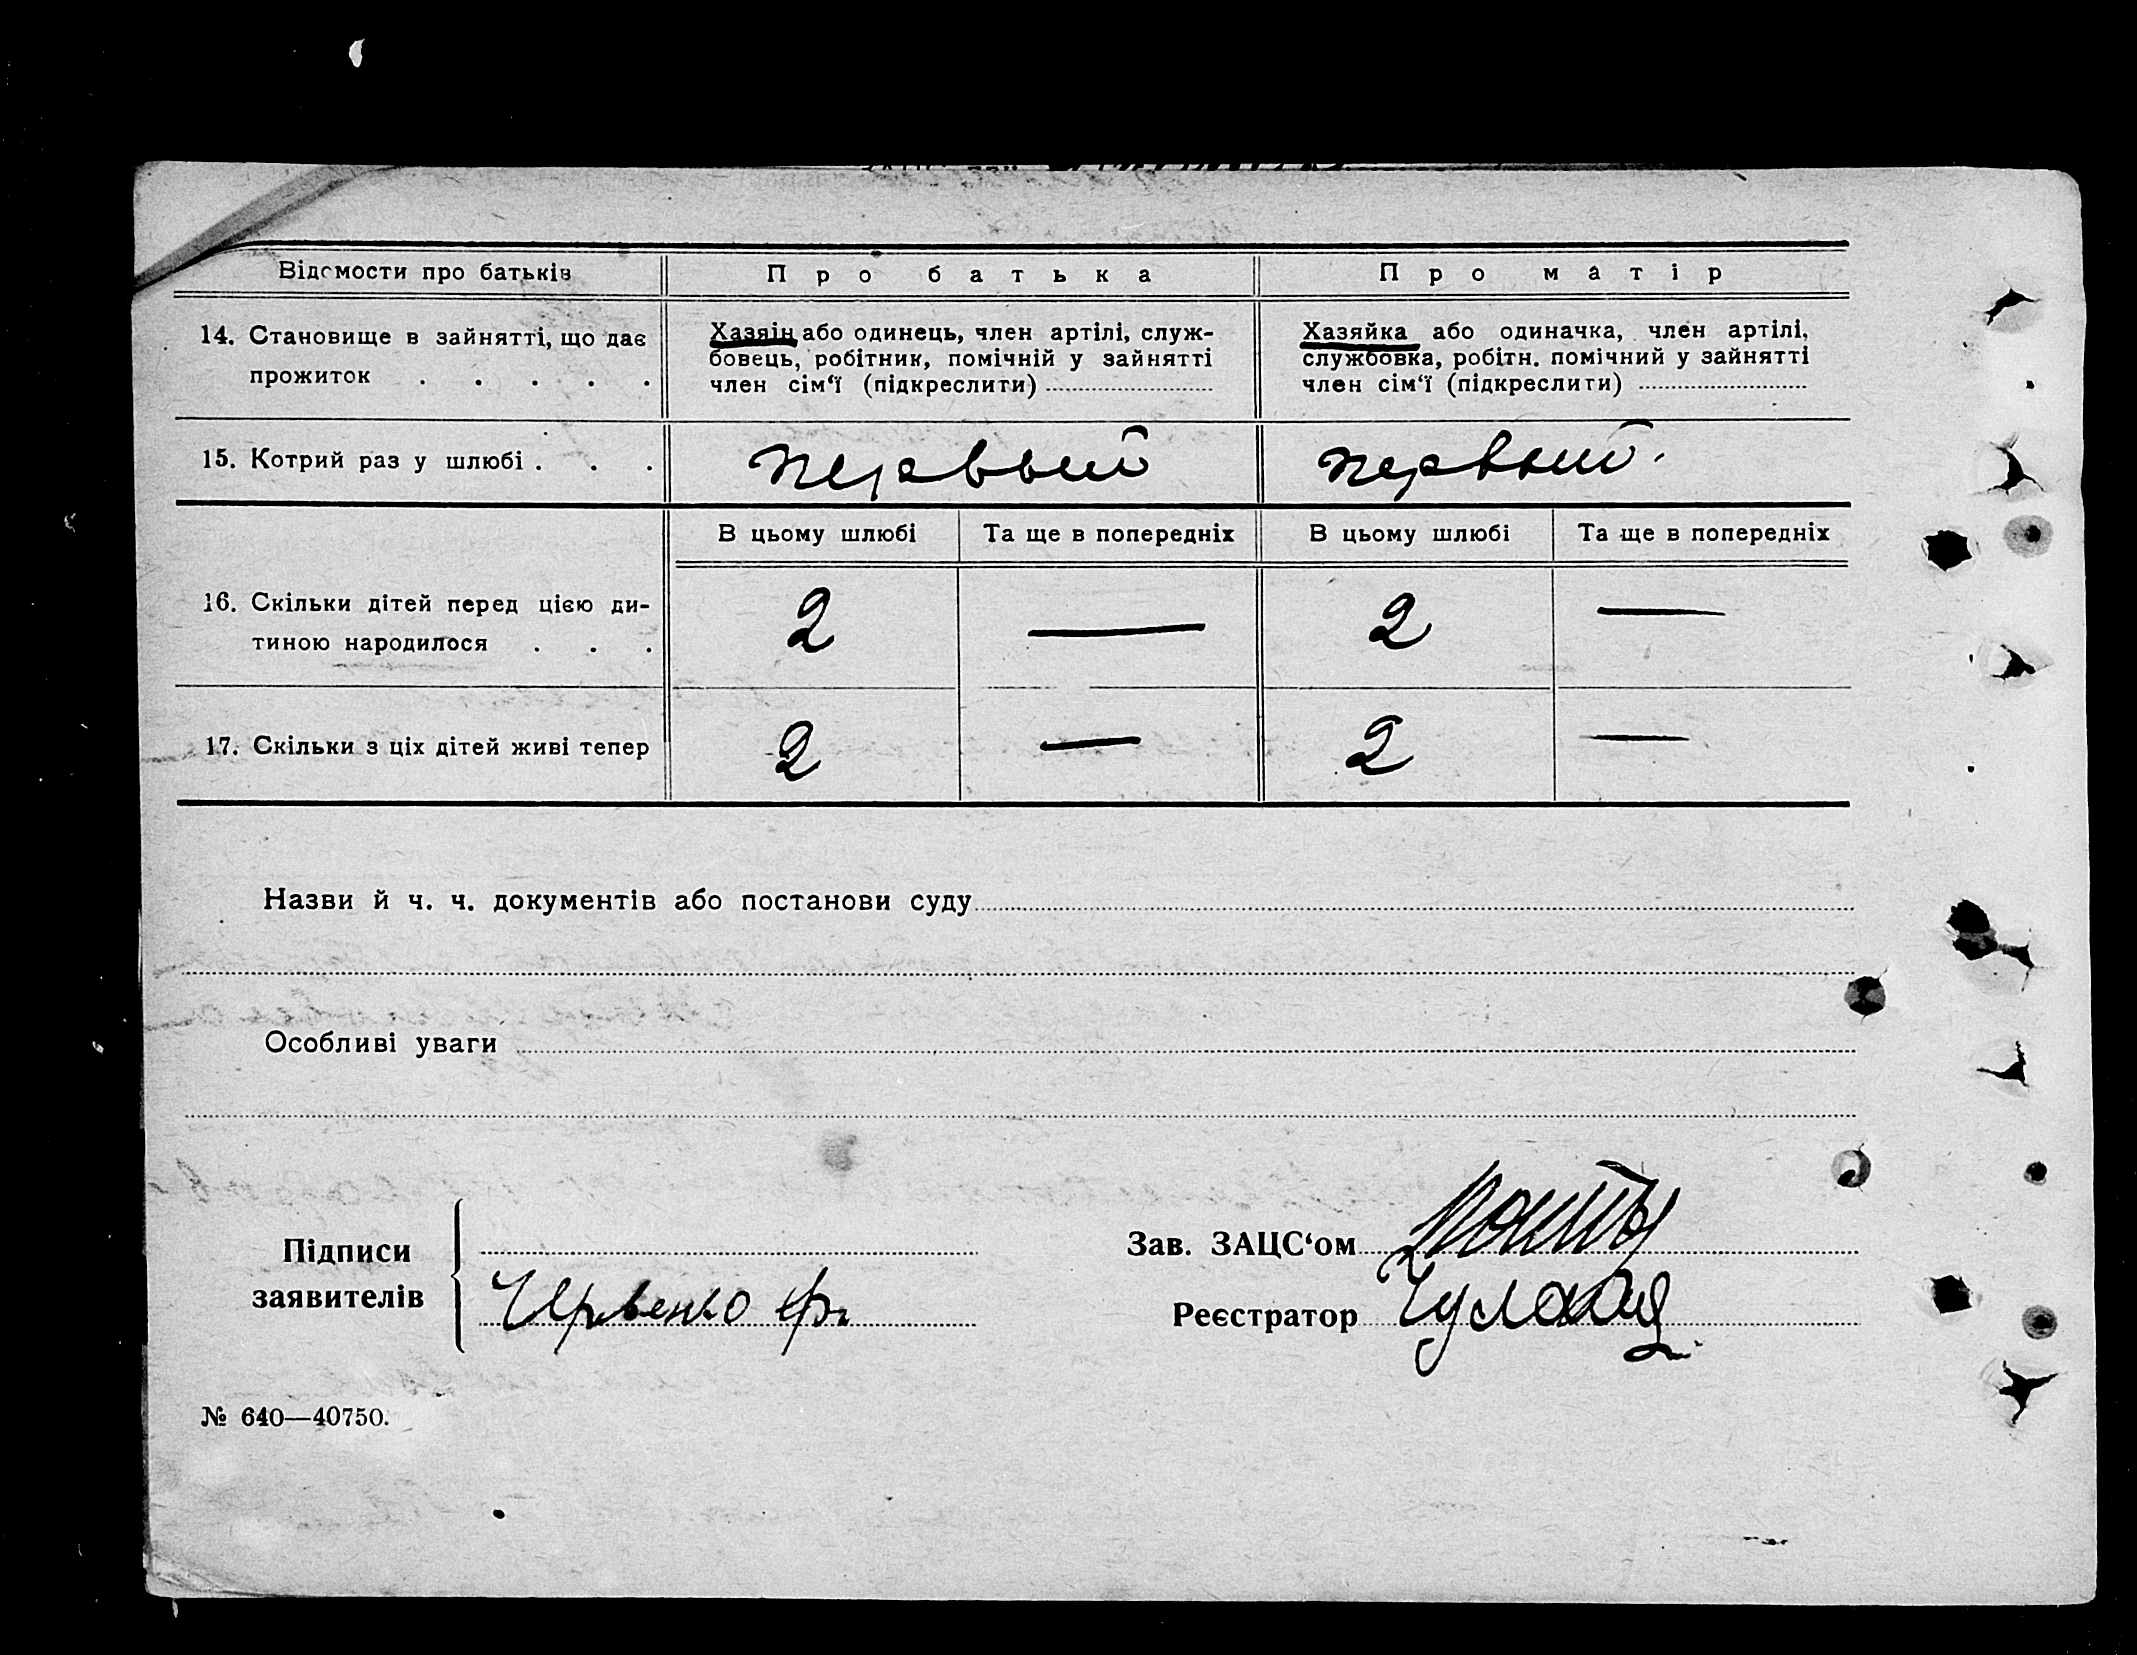 Відомости про батьків
Про батька
Про матір
14. Становище в зайнятті, що дає
прожиток . . . . .
Хазяїн або одинець, член артілі, служ-
бовець, робітник, помічній у зайнятті
член сім‘ї (підкреслити)
Хазяйка або одиначка, член артілі,
службовка, робітн. помічний у зайнятті
член сім‘ї (підкреслити)
15. Котрий раз у шлюбі . . .
первый
первый.
В цьому шлюбі
Та ще в попередніх
В цьому шлюбі
Та ще в попередніх
16. Скільки дітей перед цією ди-
тиною народилося . . .
2
—
2
—
17. Скільки з ціх дітей живі тепер
2
—
2
—
Назви й ч. ч. документів або постанови суду
Особливі уваги
Підписи
заявителів
Червенко
Зав. ЗАЦС‘ом
Реєстратор
№ 640—40750.